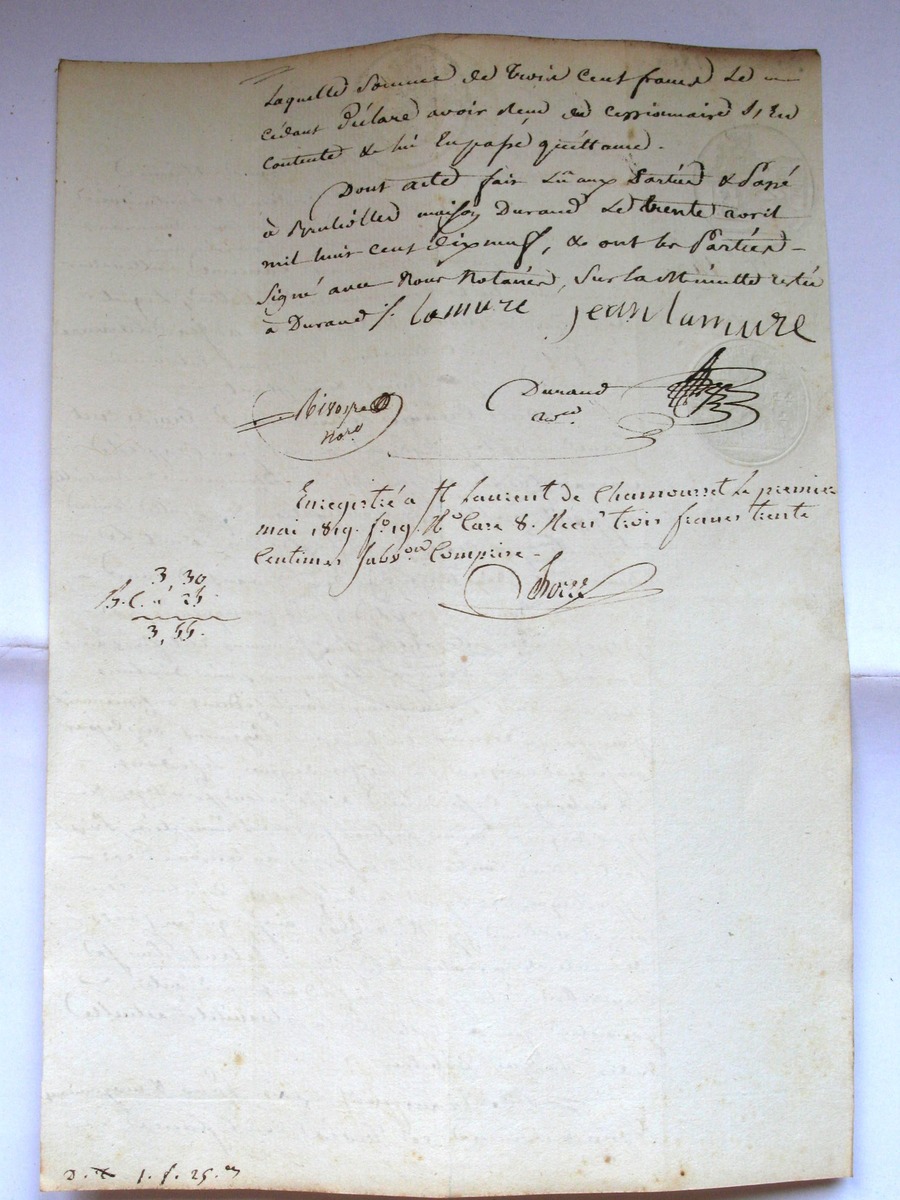 Laquelle Somme de Trois cent francs Le
cédant Déclare avoir Reçu du cessionnaire S'En
contente & lui En passe quittance.
Dont acte fait Lû aux Parties & Passé
à Brulliolles maison Durand Le trente avril
mil huit cent dix neuf, & ont les Parties
Signé avec Nous Notaires, Sur La Minutte restée
à Durand /. Lamure jean lamure
Durand
nore
Enregistré a St Laurent de Chamousset Le premier
mai 1819. fo 19. Vo Case 8. Recu trois francs trente
Centimes Subvon Comprise
3, 30
25
3, 55.
1. f. 25. c